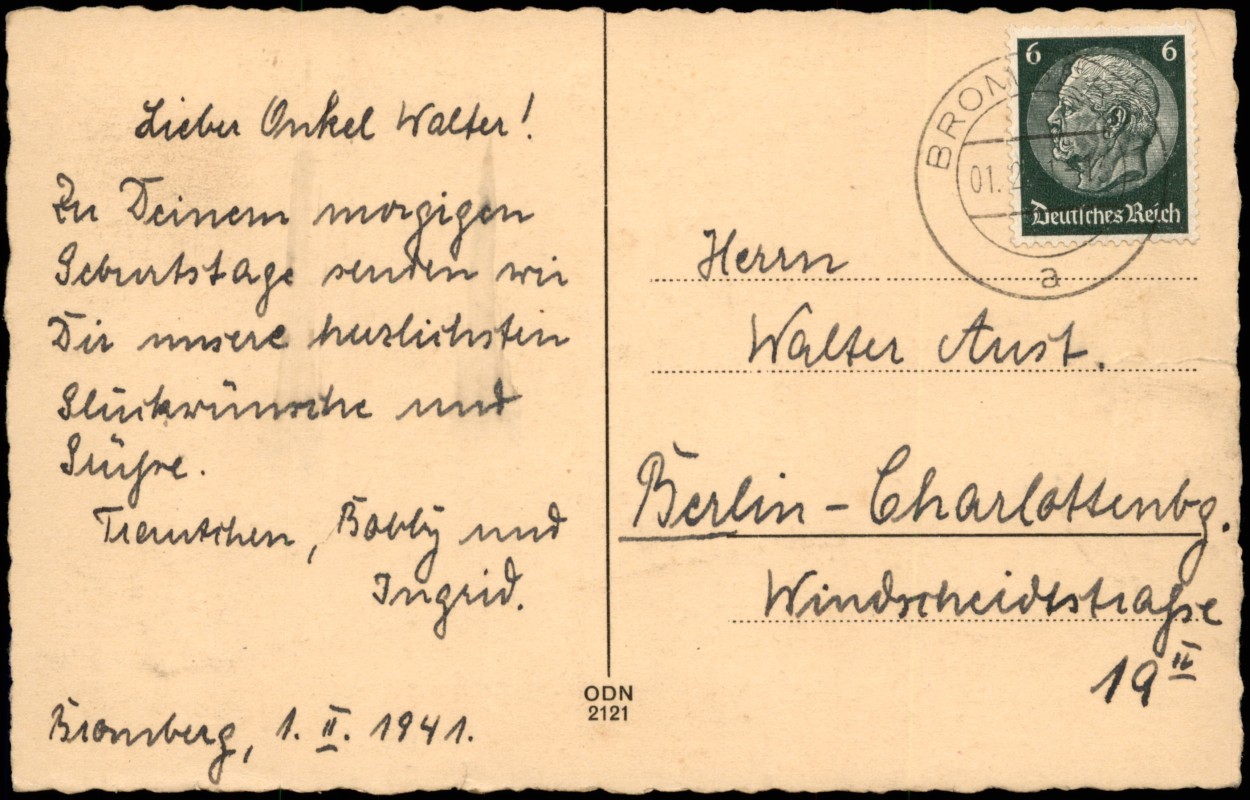 Lieber Onkel Walter!
Zu Deinem morgigen
Geburtstage senden wir
Dir unsere herzlichsten
Glückwünsche und
Grüße.
Trautchen, Bobby und
Ingrid.
Bromberg, 1. II. 1941.
ODN
2121
6 6
Deutsches Reich
BROM
01.2
a
Herrn
Walter Aust.
Berlin - Charlottenbg.
Windscheidtstraße
19 II